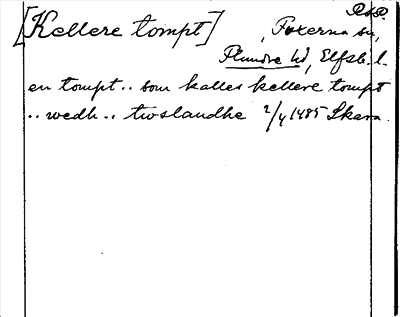 RAP.
[Kellere tompt] , Foxerna sn,
Flundre hd, Elfsb. l.
en tompt.. som kalles kellere tompt
.. wedh.. twslandhe 2/4 1485 Skara.